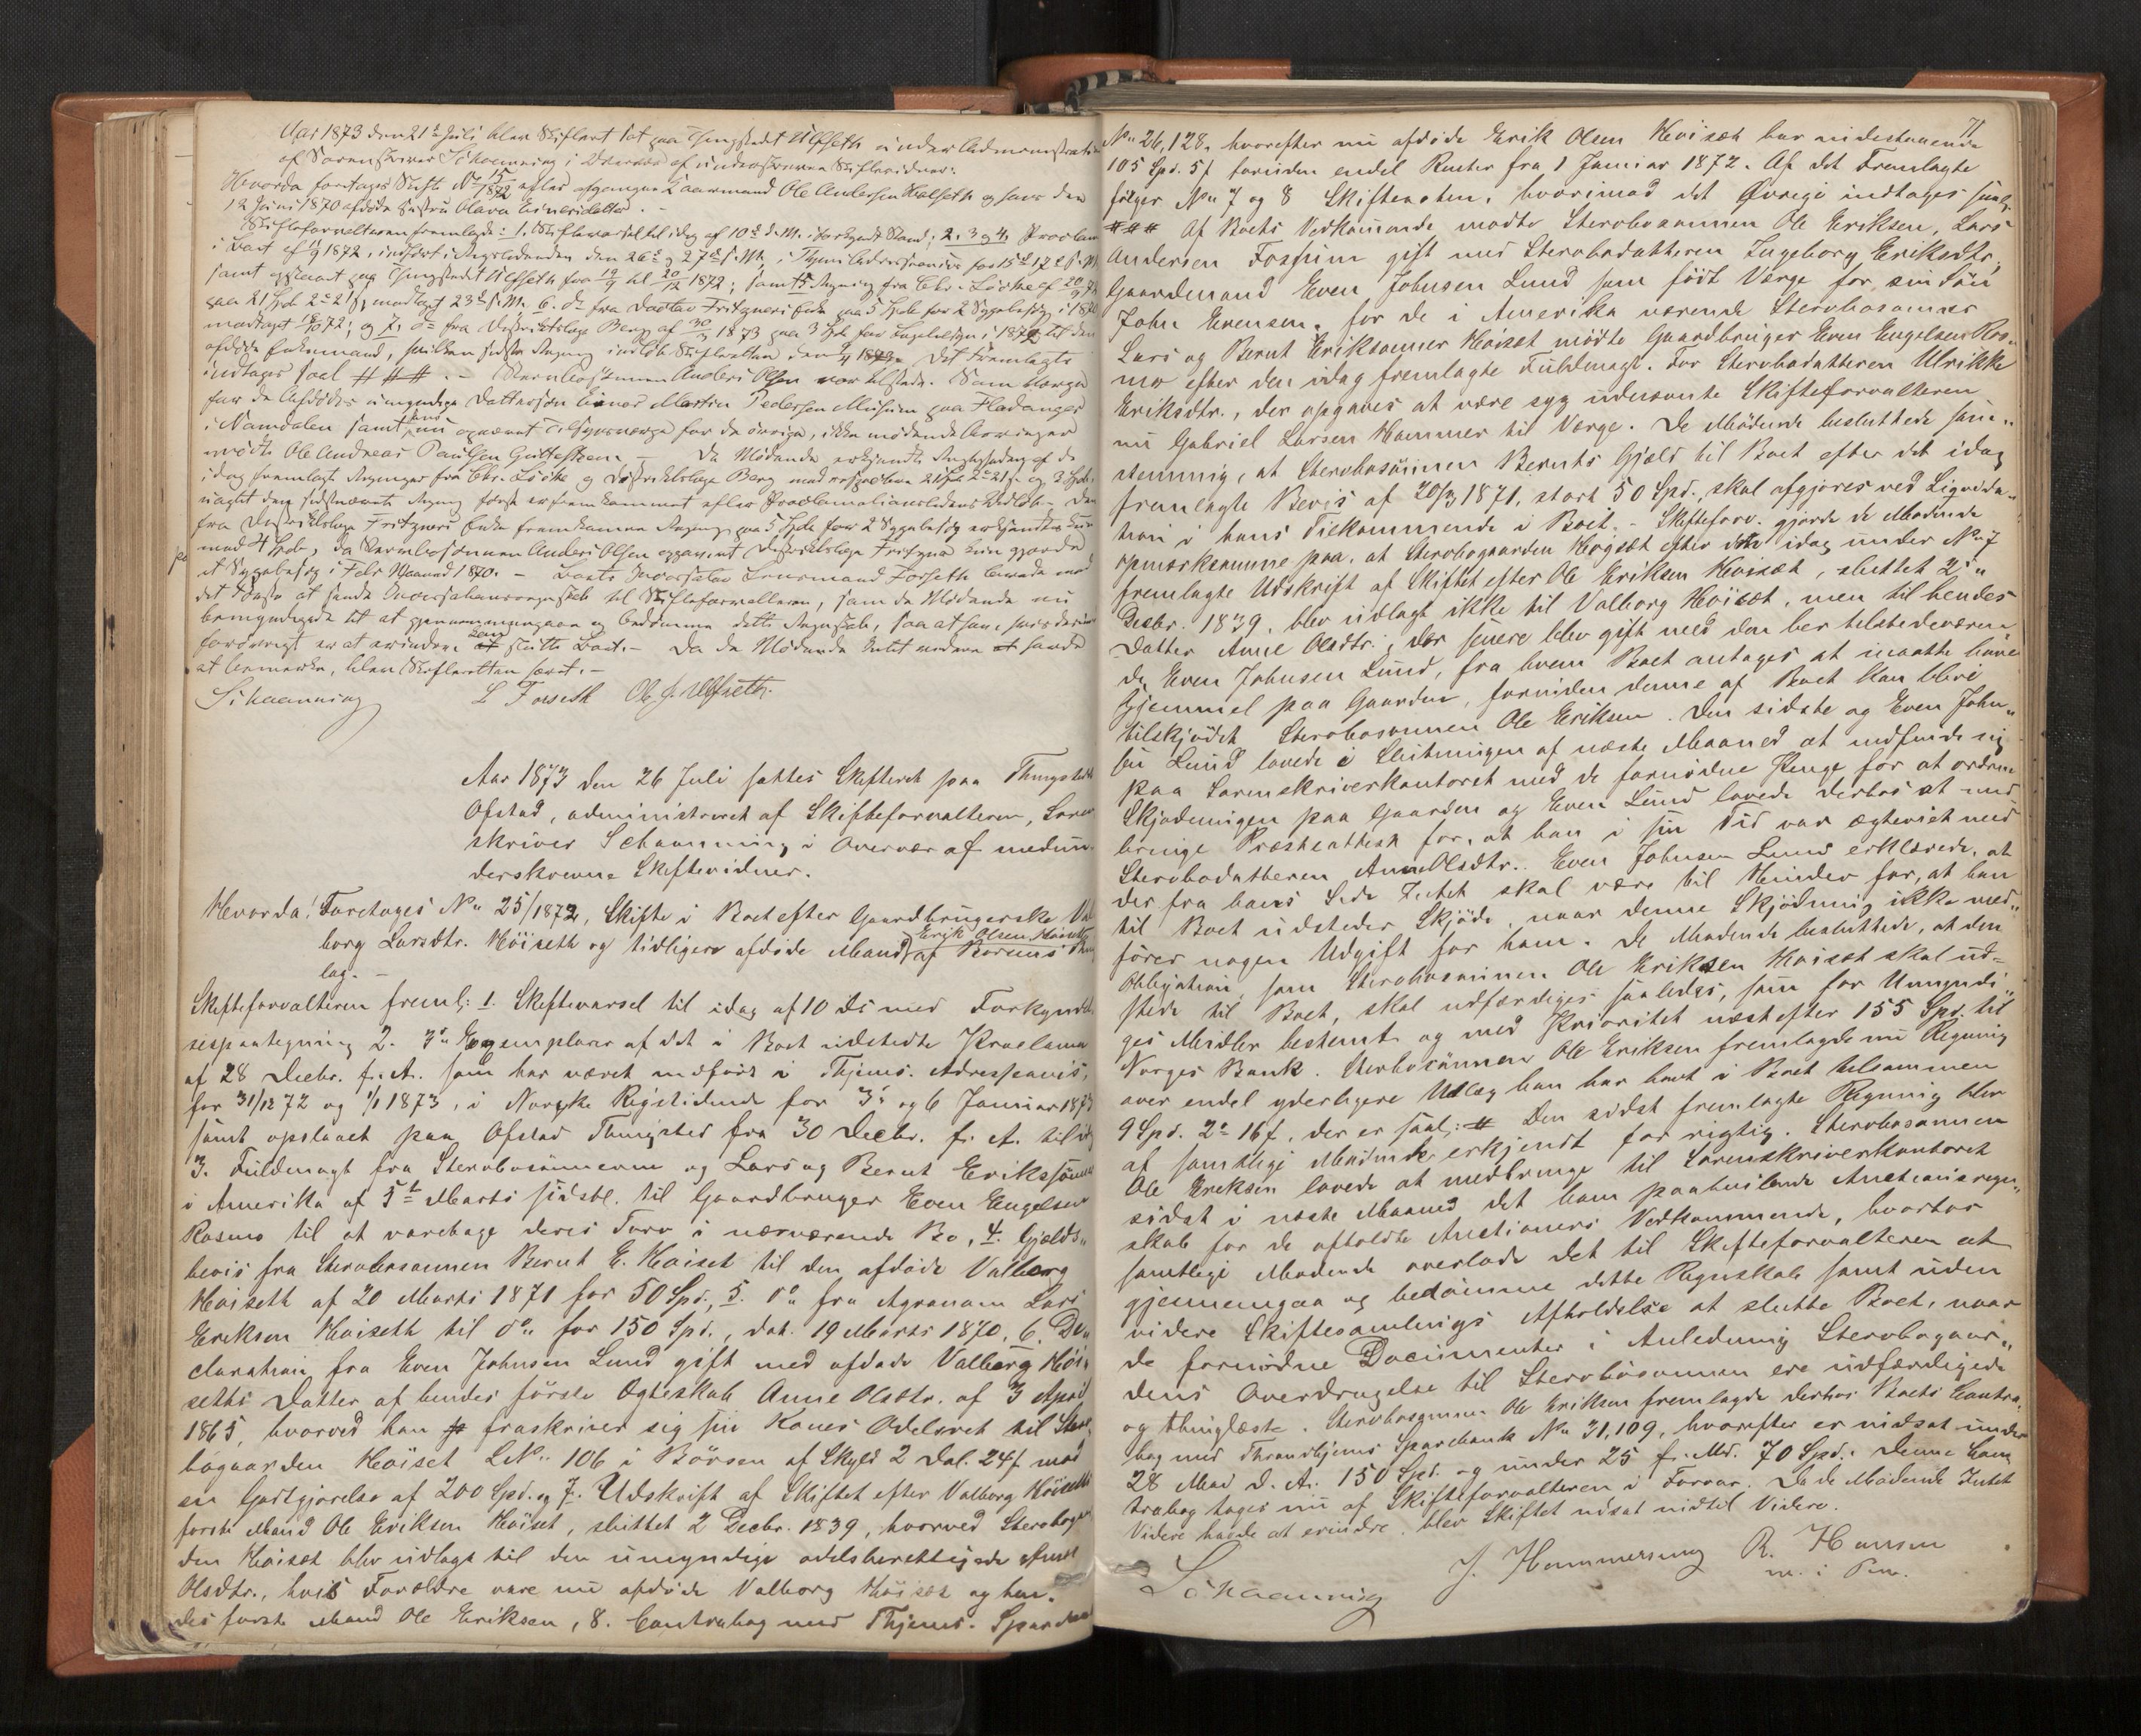 Aar 1873 den 21de Juli blev Skifteret sat paa Thingstedet Ulfseth under Administration
af Sorenskriver Schaanning i Overvær af underskrevne Skiftevidner.
Hvorda foretoges Skifte No 15/1872 efter afgangne Gaarmand Ole Andersen Halseth og hans den
12 Juni 1870 afdøde Hustru Olava Einersdatter.
Skifteforvalteren fremlagde: 1. Skiftevarsel til idag af 10de d. M. i forkyndt Stand; 2. 3 og 4. Proclam
i Boet af 11/9 1872, indført i Rigstidenden den 26de og 27de s. M., i Thjems Adresseavis for 15de 17
samt opslaaet paa Thingstedet Ulfseth fra 19/9 til 20/12 1872; samt 5. Regning fra Chr. Löche af
paa 21 Spd. 2 21 s. modtaget 23de s. M. 6. do fra Doctor Fritzners Enke paa 5 Spd. for 2 Sygebesøg i 1870
modtaget 18/10 72; og 7. do fra Distriktslæge Berg af 30/ 1873 paa 3 Spd. for Lægetilsyn i 187 til den
afdøde Enkemand, hvilken sidste Regning indløb Skifteretten den Det Fremlagte
indtages saal. ###. - Stervbosønnen Anders Olsen var tilstede. Som Værge
for de Afdødes umyndige Dattersøn Einar Martin Pedersen Musum paa Fladanger
i Namdalen samt som nu opnævnt Tilsynsværge for de øvrige, ikke mødende Arvinger
mødte Ole Andreas Paulsen Guttesteen - De Mødende erkjendte Rigtigheden af de
idag fremlagte Regninger fra Chr. Löche og Distriktslæge Berg med respective 21 Spd. 2 21 s. og 3 Spd.,
uagtet den sidstnævnte Regning først er fremkommet efter Proclamationstidens Udløb. - Den
fra Distriktslæge Fritzners Enke fremkomne Regning paa 5 Spd. for 2 Sygebesøg erkjendtes kun
med 4 Spd., da Stervbosønnen Anders Olsen opgav, at Distriktslæge Fritzner kun gjorde
et Sygebesøg i Febr Maaned 1870. - Boets Incassator Lensmand Forseth lovede med
det Første at sende Incassationsregnskab til Skifteforvalteren, som de Mødende nu
bemyndigede til at gjennemgaa og bedømme dette Regnskab, saa at han, hvis derimod
forøvrigt er at erindre, kan slutte Boet. - Da de Mødende Intet videre havde
at bemærke, blev Skifteretten hævet. -
Schaanning L Forseth Ole J. Ulfseth.
Aar 1873 den 26 Juli sattes Skifteret paa Thingstedet
Ofstad, administreret af Skifteforvalteren, Soren
skriver Schaanning i Overvær af medun
derskrevne Skiftevidner.
Hvorda! Foretoges No 25/1872, Skifte i Boet efter Gaardbrugerske Val
borg Larsdtr. Höiseth og tidligere afdøde Mand Erik Olsen Höiseth af Børseus Thing
lag. -
Skifteforvalteren freml: 1. Skiftevarsel til idag af 10 ds med Forkyndel
sespaategning 2. 3de Exemplarer af det i Boet udstedte Proclama
af 28 Decbr. f. A. som har været indført i Thjems. Adresseavis,
for 31/12 72 og 1/1 1873, i Norske Rigstidende for 3de og 6 Januar 1873
samt opslaaet paa Ofstad Thingsted fra 30 Decbr. f. A. til idag
3. Fuldmagt fra Stervbosønnerne og Lars og Bernt Erikssønner
i Amerika af 5te Marts sidstl. til Gaardbruger Even Engelsen
Rosmo til at varetage deres Tarv i nærværende Bo, 4. Gjælds„
bevis fra Stervbosønnen Bernt E. Höiset til den afdøde Valborg
Höiseth af 20 Marts 1871 for 50 Spd., 5. do fra Agronom Lars
Eriksen Höiseth til do for 150 Spd., dat. 19 Marts 1870, 6. De„
claration fra Even Johnsen Lund gift med afdøde Valborg Höi„
seths Datter af hendes første Ægteskab Anne Olsdtr. af 3 April
1865, hvorved han fraskriver sig sin Kones Odelsret til Sterv„
bogaarden Höiset LNo 106 i Börsen af Skyld 2 Dal. 24 s mod
en Godtgjørelse af 200 Spd. og 7. Udskrift af Skiftet efter Valborg Höiseths
første Mand Ole Eriksen Höiset, sluttet 2 Decbr. 1839, hvorved Stervbogaar
den Höiset blev udlagt til den umyndige odelsberettigede Anne
Olsdtr., hvis Forældre vare nu afdøde Valborg Höiset og hen„
des første Mand Ole Eriksen, 8. Contrabog med Thjems. Sparebank
71
No 26,128, hvorefter nu afdøde Erik Olsen Höiset har indestaaende
105 Spd. 5 s foruden endel Renter fra 1 Januar 1872. Af det Fremlagte
følger No 7 og 8 Skifteacten, hvorimod det Øvrige indtages saal;
### Af Boets Vedkommende mødte Stervbosønnen Ole Eriksen, Lars
Andersen Fossum gift med Stervbodatteren Ingeborg Eriksdtr.,
Gaardmand Even Johnsen Lund som født Værge for sin Søn
John Evensen, for de i Amerika værende Stervbosønner
Lars og Bernt Erikssønner Höiset mødte Gaardbruger Even Engelsen Ros„
mo efter den idag fremlagte Fuldmagt. For Stervbodatteren Ulrikke
Eriksdtr., der opgaves at være syg udnævnte Skifteforvalteren
nu Gabriel Larsen Hammer til Værge. De Mødende besluttede sam„
stemmig, at Stervbosønnen Bernts Gjæld til Boet efter det idag
fremlagte Bevis af 20/3 1871, stort 50 Spd., skal afgjøres ved Liqvida„
tion i hans Tilkommende i Boet. - Skifteforv. gjorde de Mødende
opmærksomme paa, at Stervbogaarden Høgset efter den idag under No 7
fremlagte Udskrift af Skiftet efter Ole Eriksen Höiset, sluttet 2de
Decbr. 1839, blev udlagt ikke til Valborg Höiset, men til hendes
Datter Anne Olsdtr., der senere blev gift med den her tilstedeværen
de Even Johnsen Lund, fra hvem Boet antages at maatte have
Hjemmel paa Gaarden, forinden denne af Boet kan blive
tilskjødet Stervbosønnen Ole Eriksen. Den sidste og Even John„
sen Lund lovede i Slutningen af næste Maaned at indfinde sig
paa Sorenskriverkontoret med de fornødne Penge for at ordne
Skjødningen paa Gaarden og Even Lund lovede derhos at med
bringe Præsteattest for, at han i sin Tid var ægteviet med
Stervbodatteren Anne Olsdtr. Even Johnsen Lund erklærede, at
der fra hans Side Intet skal være til Hinder for, at han
til Boet udsteder Skjøde, naar denne Skjødning ikke med„
fører nogen Udgift for ham. De Mødende besluttede, at den
Obligation, som Stervbosønnen Ole Eriksen Höiset skal ud=
stede til Boet, skal udfærdiges saaledes, som for Umyndi„
ges Midler bestemt og med Prioritet næstefter 155 Spd. til
Norges Bank. Stervbosønnen Ole Eriksen fremlagde nu Regning
over endel yderligere Udlæg han har havt i Boet tilsammen
9 Spd. 2 16 s, der er saal: # Den sidst fremlagte Regning blev
af samtlige Mødende erkjendt for rigtig. Stervbosønnen
Ole Eriksen lovede at medbringe til Sorenskriverkontoret
sidst i næste Maaned det ham paahvilende Auctionsregn„
skab for de afholdte Auctioners Vedkommende, hvorhos
samtlige Mødende overlode det til Skifteforvalteren at
gjennemgaa og bedømme dette Regnskab samt uden
videre Skiftesamlings Afholdelse at slutte Boet, naar
de fornødne Documenter i Anledning Stervbogaar„
dens Overdragelse til Stervbosønnen ere udfærdigede
og thinglæste. Stervbosønnen Ole Eriksen fremlagde derhos Boets Contra„
bog med Throndhjems Sparebank No 31,109, hvorefter er indsat under
28 Mai d. A. 150 Spd. og under 25 f. Md. 70 Spd. Denne Con„
trabog toges nu af Skifteforvalteren i Forvar. Da de Mødende Intet
Videre havde at erindre, blev Skiftet udsat indtil Videre.
Schaanning J. Hammersmog R. Hansen
m. i Pen.